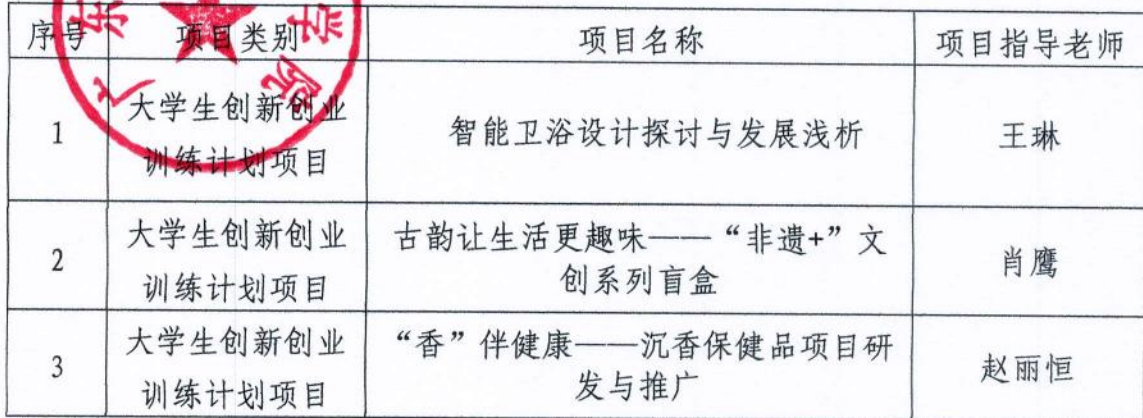 广东 学院
序号 项目类别 项目名称 项目指导老师
1 大学生创新创业
训练计划项目 智能卫浴设计探讨与发展浅析 王琳
2 大学生创新创业
训练计划项目 古韵让生活更趣味——“非遗+”文
创系列盲盒 肖鹰
3 大学生创新创业
训练计划项目 “香”伴健康——沉香保健品项目研
发与推广 赵丽恒